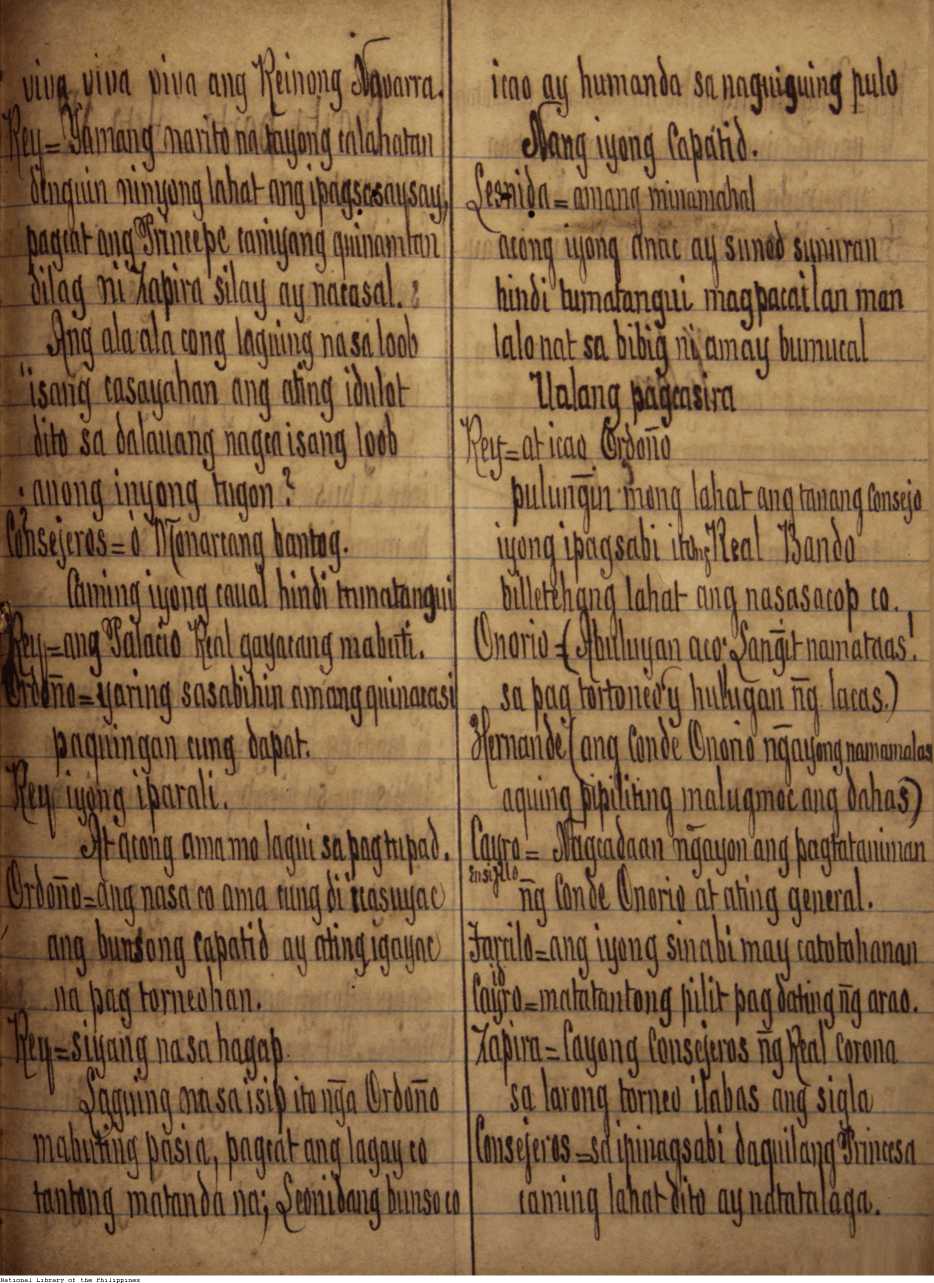 viva viva viva ang Reinong Navarra.
Rey= Yamang narito na tayong calahatan
dinguin ninyong lahat ang ipagsasaysay,
pagcat ang Principe caniyang quinamtan
dilag ni Zapira silay ay nacasal.
Ang ala ala cong laguing nasa loob
isang casayahan ang ating idulot
dito sa dalauang nagcaisang loob
anong inyong tugon?
Consejeros= ó Monarcang bantog.
Caming iyong caual hindi tumatangui
Rey=ang Palacio Real gayacang mabuti.
Ordoño=yaring sasabihin amang quinacasi
paquingan cung dapat.
Rey iyong iparali.
At acong ama mo lagui sa pagtupad.
Ordoño=ang nasa co ama cung di casuyac
ang bunsong capatid ay ating igayac
na pag torneohan.
Rey=siyang nasa hagap
Laguing nasa isip ito ñga Ordoño
mabuting pasia, pagcat ang lagay co
tantong matanda na; Leonidang bunso co
icao ay humanda sa naguiguing pulo
Nang iyong Capatid.
Leonida=amang minamahal
acong iyong anac ay sunod sunuran
hindi tumatangui magpacailan man
lalo nat sa bibig ni amay bumucal
Ualang pagcasira
Rey=at icao Ordoño
pulungin mong lahat ang tanang Consejo
iyong ipagsabi itong Real Bando
billetehang lahat ang nasasacop co.
Onorio=(Abuluyan aco Langit namataas!
sa pag tortoneo'y huhigan ñg lacas.)
Hernande(ang Conde Onorio ñgayong namamalas
aquing pipiliting malugmoc ang dahas)
Cayro= Nagcadaan ñgayon ang pagtataniman
ñg Conde Onorio at ating general.
Tarcilo=ang iyong sinabi may catotohanan
Cayro=matatantong pilit pag dating ñg arao.
Zapira=Cayong Consejeros ñg Real Corona
sa larong torneo ilabas ang sigla
Consejeros=sa ipinagsabi daquilang Princesa
caming lahat dito ay natatalaga.
National Library of the Philippines